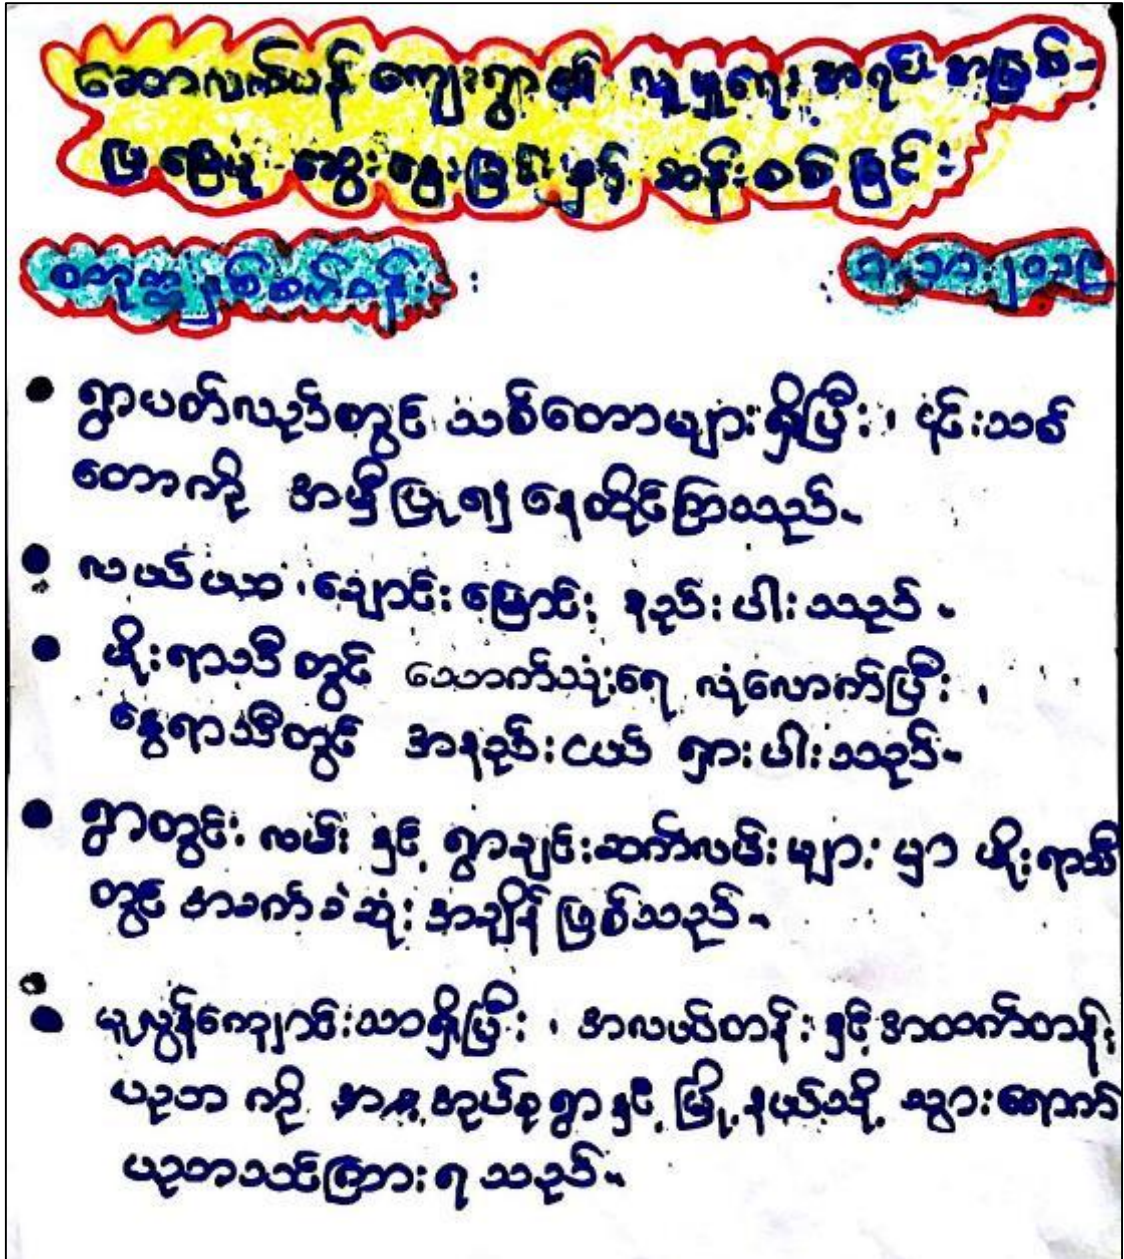 ဆောလက်ပန် ကျေးရွာ၏ လူမှုရေး အရပ် အခြစ်-
ဖြစ်ပုံ ဆွေးနွေးခြင်းနှင့် ဆန်းစစ်ခြင်း
၃.၁၁.၂၀၁၉
• ရွာပတ်လည်တွင် သစ်တောများရှိပြီး၊ ၎င်းသစ်
တောကို အမှီပြု၍ နေထိုင်ကြသည်။
• လယ်ယာ ချောင်းမြောင်း နည်းပါးသည်။
• မိုးရာသီတွင် သောက်သုံးရေ လုံလောက်ပြီး၊
နွေရာသီတွင် အနည်းငယ် ရှားပါးသည်။
• ရွာတွင်းလမ်းနှင့် ရွာချင်းဆက်လမ်းများမှာ မိုးရာသီ
တွင် အခက်ခဲဆုံးအချိန် ဖြစ်သည်။
• မူလွန်ကျောင်းသာရှိပြီး၊ အလယ်တန်းနှင့် အထက်တန်း
ပညာကို အုပ်စုရွာနှင့် မြို့နယ်သို့ သွားရောက်
ပညာသင်ကြားရသည်။